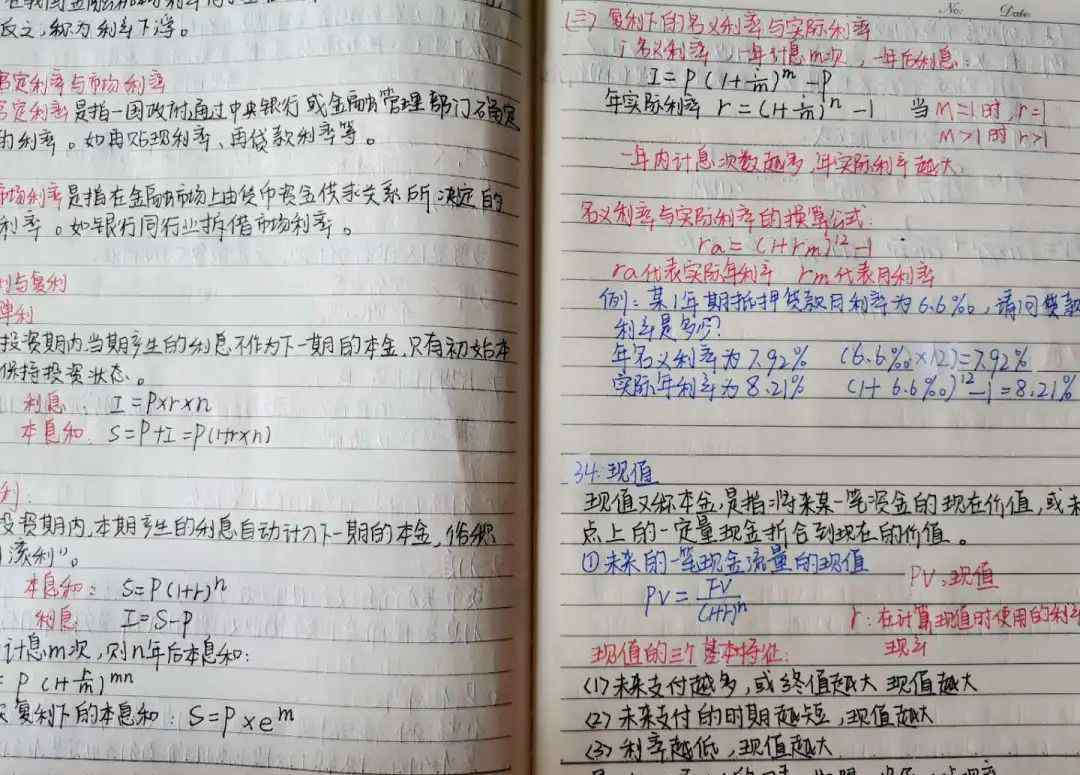 反之,称为利率下浮。
官定利率与市场利率
官定利率是指一国政府通过中央银行或金融管理部门确定
的利率。如再贴现利率、再贷款利率等。
市场利率是指在金融市场上由货币资金供求关系所决定的
利率。如银行同行业拆借市场利率。
利与复利
单利
投资期内,当期产生的利息不作为下一期的本金,只有初始本
保持投资状态。
利息: I=P×r×n
本息和: S=P+I=P(1+r×n)
利:
投资期内,本期产生的利息自动计入下一期的本金,俗称
滚利”。
本息和: S=P(1+r)ⁿ
利息 I=S-P
计息m次,则n年后本息和:
= P(1+r/m)^mn
复利下的本息和: S=P×e^m
No. Date
(三)复利下的名义利率与实际利率
i名义利率,一年计息m次,一年后利息:
I=P(1+i/m)^m-P
年实际利率 r=(1+i/m)^n-1 当m=1时 r=1
m>1时 r>1
一年内计息次数越多,年实际利率越大
名义利率与实际利率的换算公式:
ra=(1+rm)^12-1
ra代表实际年利率 rm代表月利率
例:某1年期抵押贷款月利率为6.6‰,请问贷款
利率是多少?
年名义利率为7.92% (6.6‰×12)=7.92%
实际年利率为8.21% (1+6.6‰)^12-1=8.21%
34.现值
现值又称本金,是指将来某一笔资金的现在价值,或未
点上的一定量现金折合到现在的价值。
①未来的一笔现金流量的现值
PV=FV/(1+r)^n PV:现值
r:在计算现值时使用的利率
现值的三个基本特征:
(1)未来支付越多,或终值越大 现值越大
(2)未来支付的时期越短,现值越大
(3)利率越低,现值越大